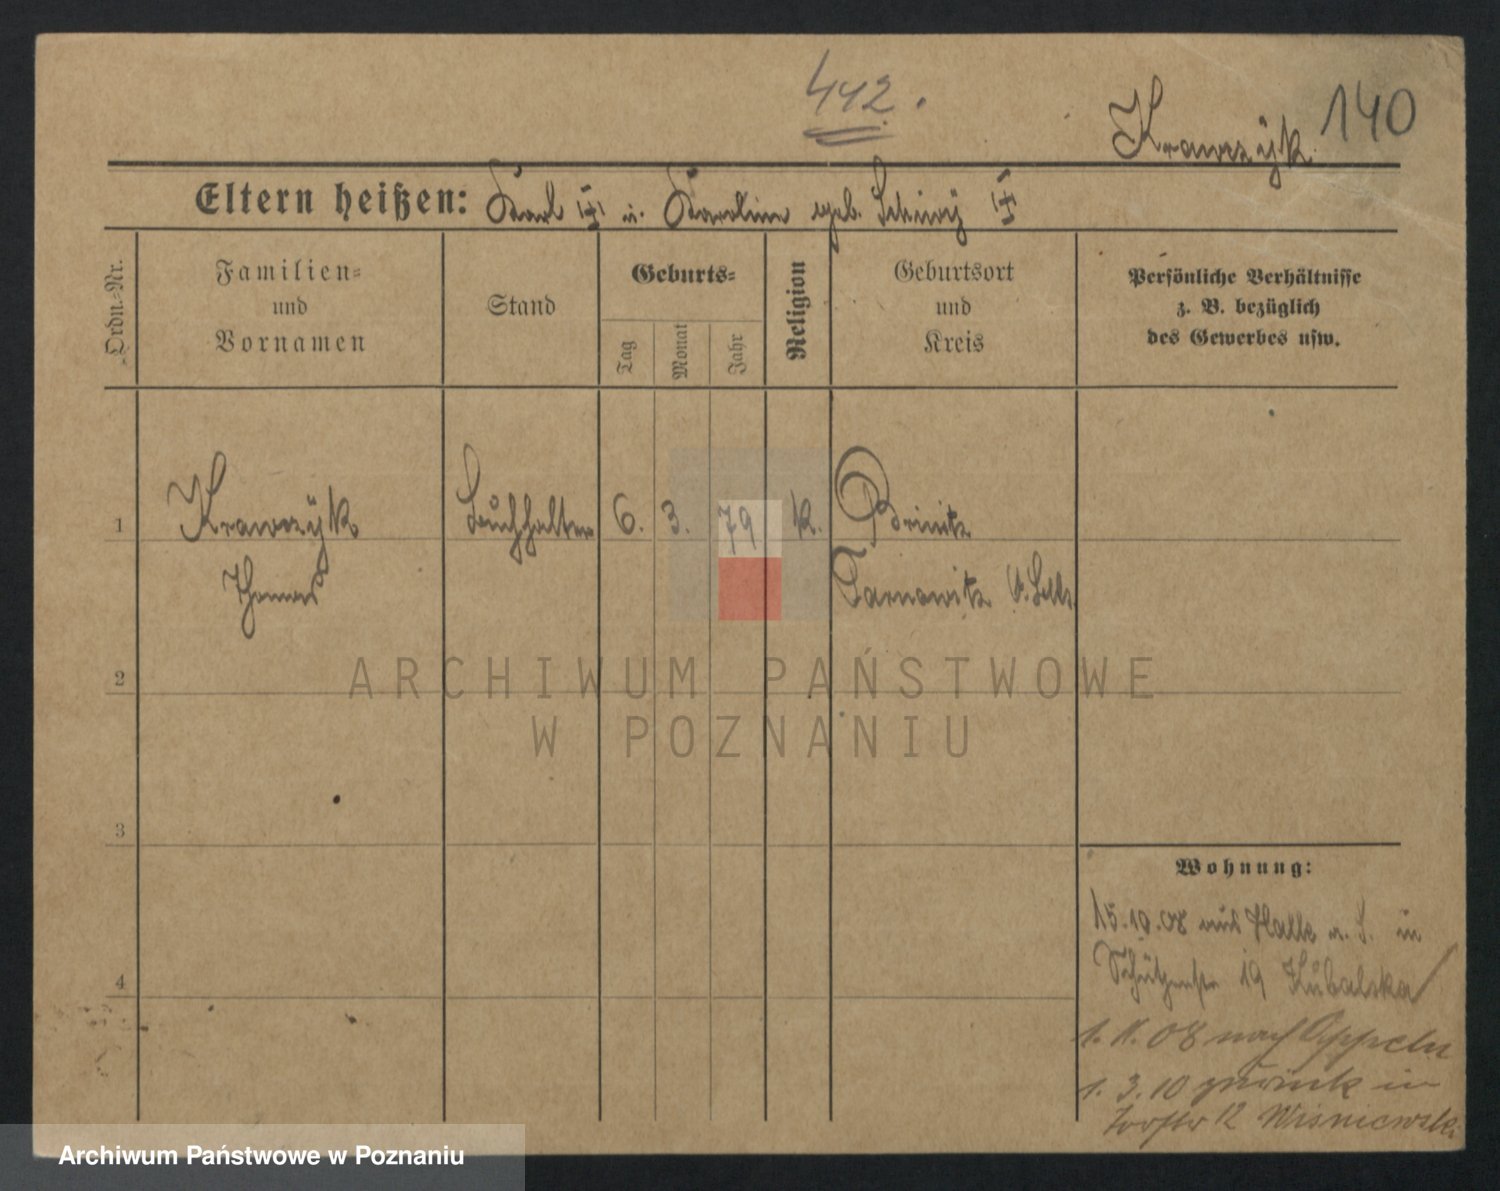 442.
Krawczÿk 140
Eltern heißen: Karl u. Karolina geb.
Ordn.-Nr.
Familien-
und
Vornamen
Stand
Geburts-
Tag
Monat
Jahr
Religion
Geburtsort
und
Kreis
Persönliche Verhältnisse
z. B. bezüglich
des Gewerbes usw.
1 Krawczÿk Buchhalter 6. 3. 79 K. Brinitz
Thomas Tarnowitz
2
ARCHIWUM PAŃSTWOWE
W POZNANIU
3
Wohnung:
15.10.08 aus Halle a. S. in
4 Schützenstr 19 Kubalska
1. 11. 08 nach Oppeln
1. 3. 10 zurück in
Torstr 12 Wisniewski
Archiwum Państwowe w Poznaniu